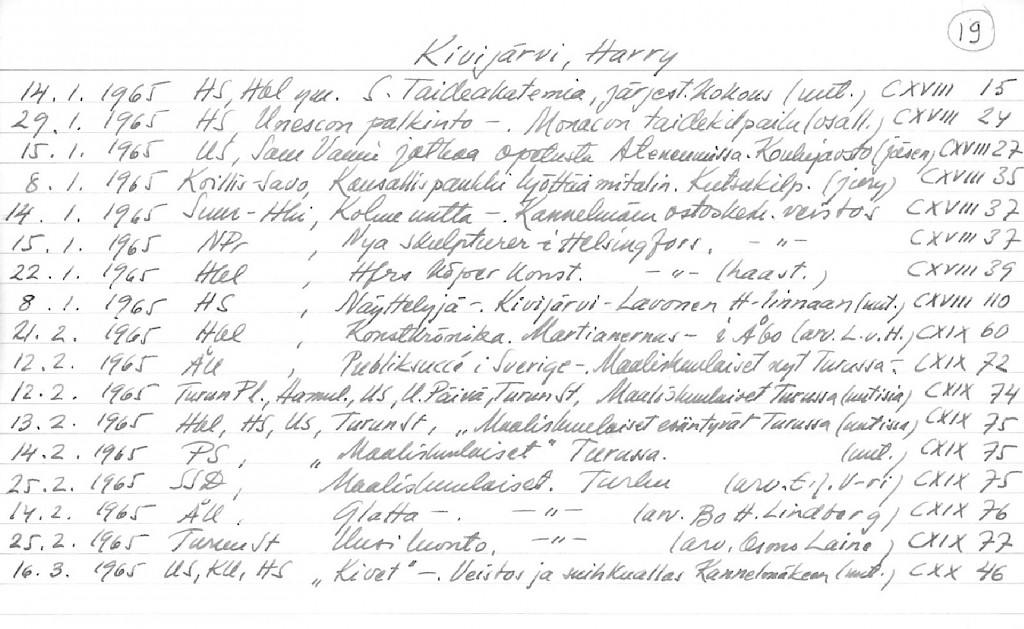 19
Kivijärvi, Harry
14.1. 1965 HS, Hbl ym. S. Taideakatemia, järjest. kokous (uut.) CXVIII 15
29.1. 1965 HS, Unescon palkinto -. Monacon taidekilpailu (osall.) CXVIII 24
15.1. 1965 US, Sam Vanni jatkaa opetusta Ateneumissa. Koulujaosto (jäsen) CXVIII 27
8.1. 1965 Koillis-Savo, Kansallispankki lyöttää mitalin. Kutsukilp. (jury) CXVIII 35
14.1. 1965 Suur-Hki, Kolme uutta -. Kannelmäen ostoskesk. veistos CXVIII 37
15.1. 1965 NPr, Nya skulpturer i Helsingfors. -"- CXVIII 37
22.1. 1965 Hbl, Hfrs köper konst. -"- (haast.) CXVIII 39
8.1. 1965 HS, Näyttelyjä -. Kivijärvi - Lavonen H-linnaan (uut.) CXVIII 110
21.2. 1965 Hbl, Konstkrönika. Martianernas - i Åbo (arv. L.v.H.) CXIX 60
12.2. 1965 ÅU, Publiksuccé i Sverige -. Maaliskuulaiset nyt Turussa - CXIX 72
12.2. 1965 TurunPl., Hämul., US, U.Päivä, TurunSt, Maaliskuulaiset Turussa (uutisia) CXIX 74
13.2. 1965 Hbl, HS, US, TurunSt, „Maaliskuulaiset esiintyvät Turussa (uutisia) CXIX 75
14.2. 1965 PS, „Maaliskuulaiset" Turussa. (uut.) CXIX 75
25.2. 1965 SSD, Maaliskuulaiset. Turku (arv. E.J. V-ri) CXIX 75
14.2. 1965 ÅU. Glatta -. -"- (arv. Bo H. Lindberg) CXIX 76
25.2. 1965 TurunSt Uusi luonto. -"- (arv. Osmo Laine) CXIX 77
16.3. 1965 US, KU, HS „Kivet" -. Veistos ja suihkuallas Kannelmäkeen (uut.) CXX 46